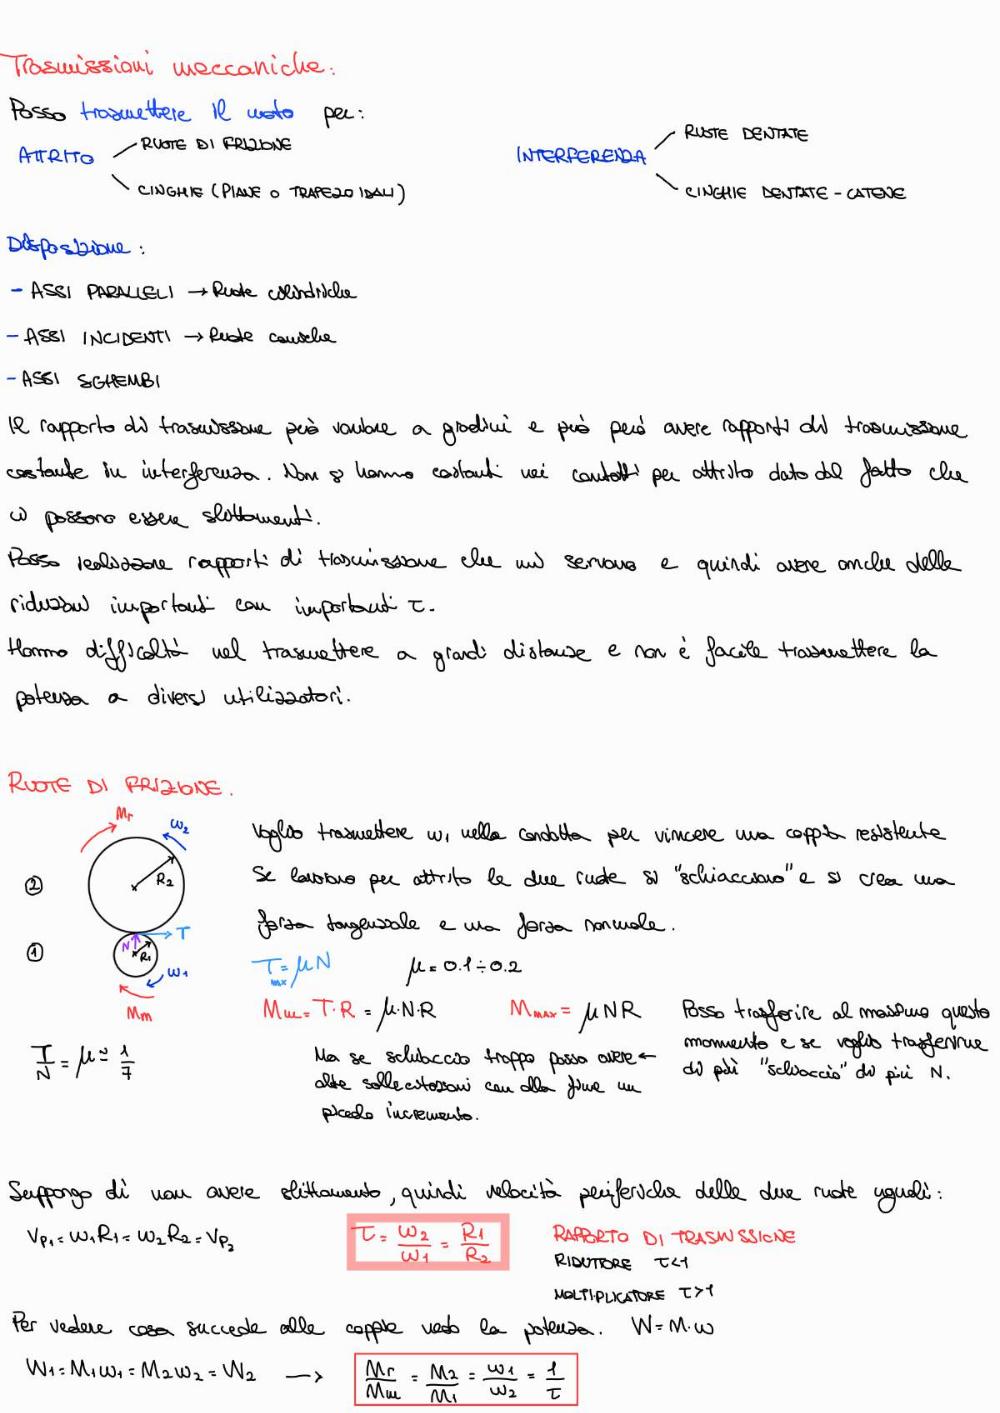 Trasmissioni meccaniche:
Posso trasmettere il moto per:
ATTRITO
RUOTE DI FRIZIONE
CINGHIE (PIANE O TRAPEZOIDALI)
INTERFERENZA
RUOTE DENTATE
CINGHIE DENTATE - CATENE
Disposizione:
- ASSI PARALLELI → Ruote cilindriche
- ASSI INCIDENTI → Ruote coniche
- ASSI SGHEMBI
Il rapporto di trasmissione può variare a gradini e può però avere rapporti di trasmissione
costante in interferenza. Non si hanno costanti nei contatti per attrito dato dal fatto che
ci possono essere slittamenti.
Posso realizzare rapporti di trasmissione che mi servono e quindi avere anche delle
riduzioni importanti con importanti τ.
Hanno difficoltà nel trasmettere a grandi distanze e non è facile trasmettere la
potenza a diversi utilizzatori.
RUOTE DI FRIZIONE.
Mr
ω2
R2
②
①
N
T
R1
ω1
Mm
T/N = μ ≃ 1/7
Voglio trasmettere ω1 nella condotta per vincere una coppia resistente
Se lavoro per attrito le due ruote si "schiacciano" e si crea una
forza tangenziale e una forza normale.
Tmax = μN μ = 0.1 ÷ 0.2
Mm = T·R = μ·N·R Mmax = μNR
Posso trasferire al massimo questo
momento e se voglio trasferirne
di più "schiaccio" di più N.
Ma se schiaccio troppo posso avere ←
altre sollecitazioni con alla fine un
piccolo incremento.
Suppongo di non avere slittamento, quindi velocità periferiche delle due ruote uguali:
VP1 = ω1R1 = ω2R2 = VP2
τ = ω2/ω1 = R1/R2
RAPPORTO DI TRASMISSIONE
RIDUTTORE τ<1
MOLTIPLICATORE τ>1
Per vedere cosa succede alle coppie vedo la potenza. W = M·ω
W1 = M1ω1 = M2ω2 = W2 → Mr/Mm = M2/M1 = ω1/ω2 = 1/τ